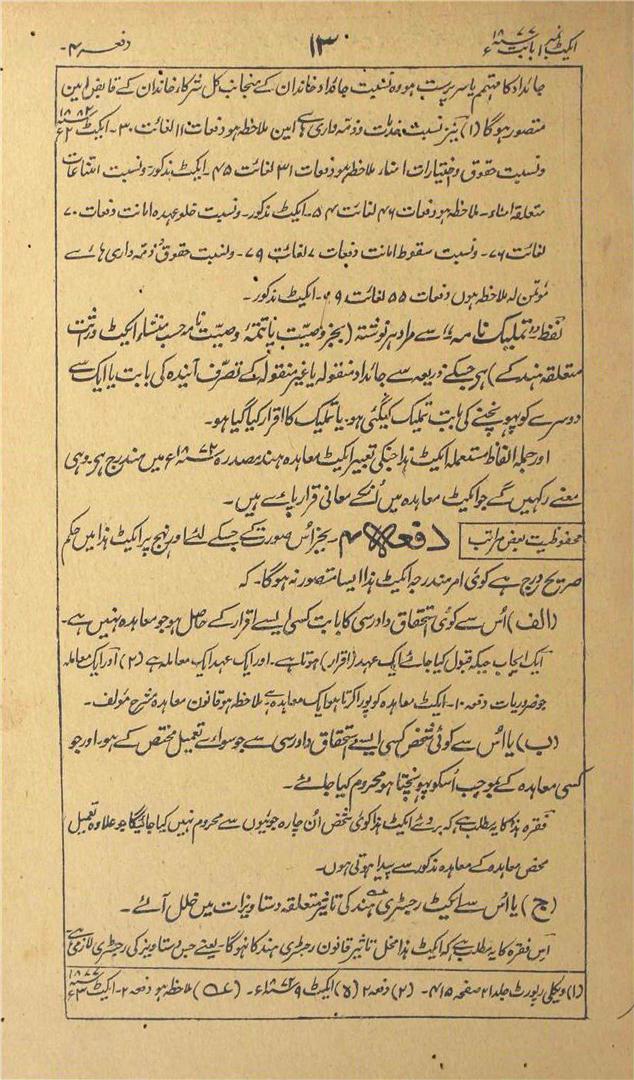 ایکٹ نمبر ۱ بابت ۱۸۷۷ء ۱۳ دفعہ ۴۔
جائداد کا مہتمم یا سرپرست ہو وہ نسبت جائداد خاندان کے منجانب کل شرکاء خاندان کے قابض امین
متصور ہوگا (۱) نیز نسبت خدمات و ذمہ داری ہائے امین ملاحظہ ہو دفعات ۱۱ لغائت ۳۰۔ ایکٹ ۲ ۱۸۸۲ء
و نسبت حقوق و اختیارات امناء ملاحظہ ہو دفعات ۳۱ لغائت ۴۵۔ ایکٹ مذکور۔ و نسبت امتناعات
متعلقہ امناء۔ ملاحظہ ہو دفعات ۴۶ لغائت ۵۴۔ ایکٹ مذکور۔ و نسبت خلو عہدہ امانت دفعات ۷۰
لغائت ۷۶۔ و نسبت سقوط امانت دفعات ۷۷ لغائت ۷۹۔ و نسبت حقوق و ذمہ داری ہائے
موتمن لہ ملاحظہ ہوں دفعات ۵۵ لغائت ۶۹۔ ایکٹ مذکور۔
لفظ "تملیک نامہ" سے مراد ہر نوشتہ (بجز وصیت یا تتمۂ وصیت نامہ حسب منشاء ایکٹ وراثت
متعلقہ ہند کے) ہی جسکے ذریعہ سے جائداد منقولہ یا غیر منقولہ کے تصرف آیندہ کی بابت یا ایک سے
دوسرے کو پہونچنے کی بابت تملیک کیگئی ہو۔ یا تملیک کا اقرار کیا گیا ہو۔
اور جملہ الفاظ مستعملہ ایکٹ ہذا جنکی تعبیر ایکٹ معاہدہ ہند مصدرہ ۱۸۷۲ء میں مندرج ہی۔ وہی
معنے رکہیں گے جو ایکٹ معاہدہ میں اُنکے معانی قرار پائے ہیں۔
محفوظیت بعض مراتب دفعہ ۴۔ بجز اُس صورت کے جسکے لئے اور نہج پر ایکٹ ہذا میں حکم
صریح درج ہے کوئی امر مندرجہ ایکٹ ہذا ایسا متصور نہ ہوگا۔ کہ
(الف) اُس سے کوئی استحقاق دادرسی کا بابت کسی ایسے اقرار کے حاصل ہو جو معاہدہ نہیں ہے۔
ایک ایجاب جبکہ قبول کیا جائے ایک عہد (اقرار) ہوتا ہے۔ اور ایک عہد ایک معاملہ ہے (۲) اور ایک معاملہ
جو ضروریات دفعہ ۱۰۔ ایکٹ معاہدہ کو پورا کرتا ہو ایک معاہدہ ہے ملاحظہ ہو قانون معاہدہ مشرح مولف۔
(ب) یا اُس سے کوئی شخص کسی ایسے استحقاق دادرسی سے جو سوائے تعمیل مختص کے ہو۔ اور جو
کسی معاہدہ کے بموجب اُسکو پہونچتا ہو محروم کیا جائے۔
فقرہ ہذا کا یہ مطلب ہے کہ بروئے ایکٹ ہذا کوئی شخص اُن چارہ جوئیوں سے محروم نہیں کیا جائیگا جو علاوہ تعمیل
محض معاہدہ کے معاہدہ مذکور سے پیدا ہوتی ہوں۔
(ج) یا اُس سے ایکٹ رجسٹری ہند کی تاثیر متعلقہ دستاویزات میں خلل آئے۔
اس فقرہ کا یہ مطلب ہے کہ ایکٹ ہذا مخل تاثیر قانون رجسٹری ہند کا نہوگا۔ یعنے جس دستاویز کی رجسٹری لازمی ہے
(۱) ویکلی رپورٹ جلد ۲۱ صفحہ ۴۱۵۔ (۲) دفعہ ۲ (۵) ایکٹ ۹ ۱۸۷۲ء۔ ملاحظہ ہو دفعہ ۲۔ ایکٹ ۳ ۱۸۷۷ء